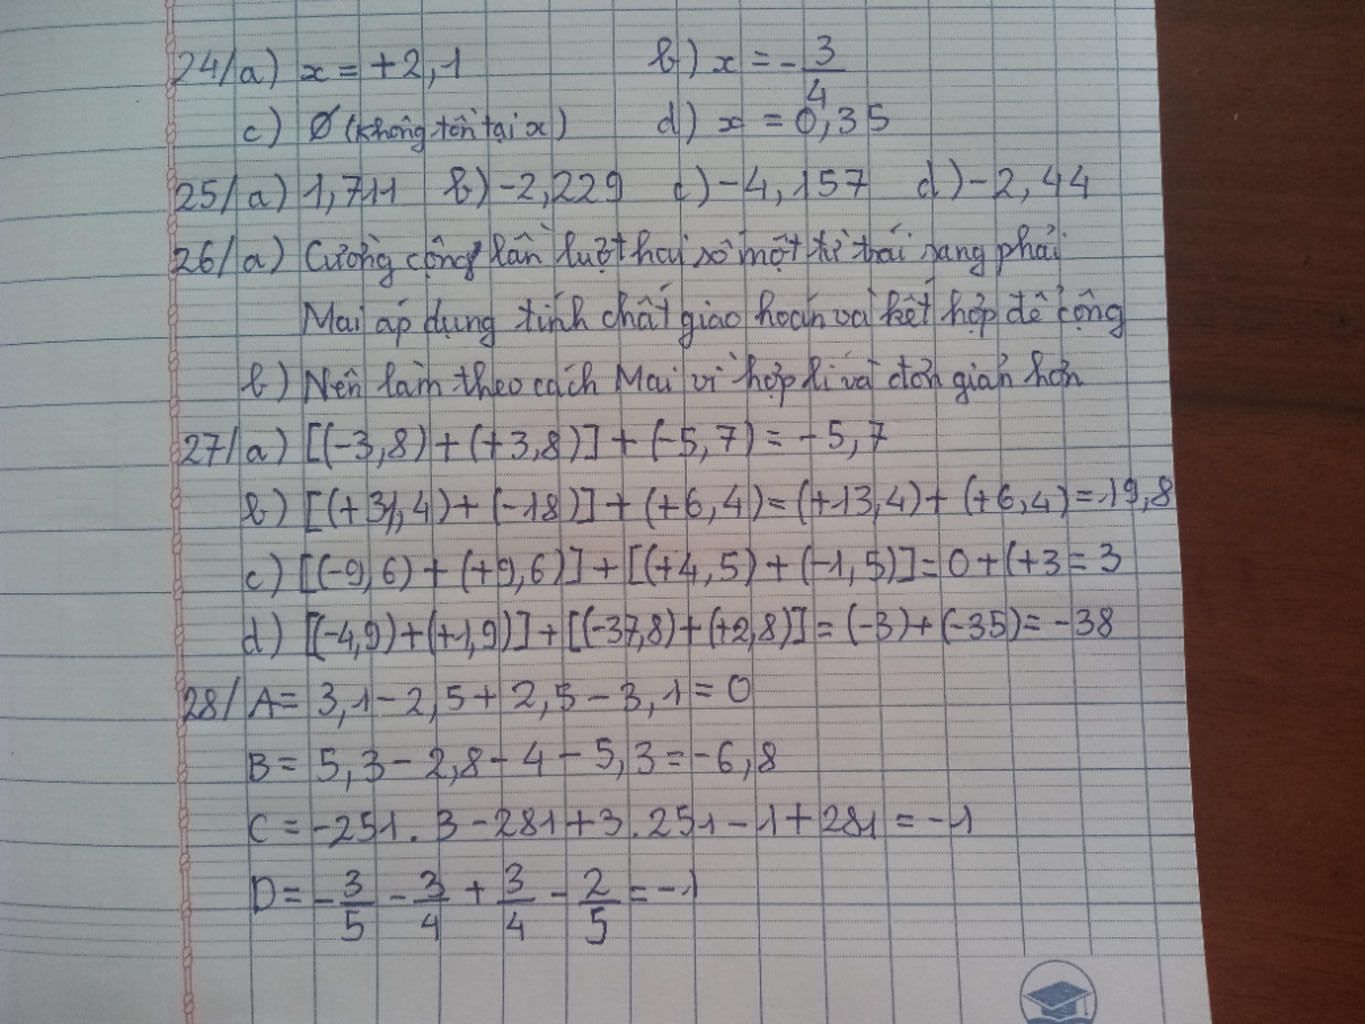 24/a) x = +2,1 b) x = -3/4
c) Ø (không tồn tại x) d) x = 0,35
25/a) 1,711 b) -2,229 c) -4,157 d) -2,44
26/a) Cường cộng lần lượt hai số một từ trái sang phải
Mai áp dụng tính chất giao hoán và kết hợp để cộng
b) Nên làm theo cách Mai vì hợp lí và đơn giản hơn
27/a) [(-3,8) + (+3,8)] + (-5,7) = -5,7
b) [(+31,4) + (-18)] + (+6,4) = (+13,4) + (+6,4) = 19,8
c) [(-9,6) + (+9,6)] + [(+4,5) + (-1,5)] = 0 + (+3 = 3
d) [(-4,9) + (+1,9)] + [(-37,8) + (+2,8)] = (-3) + (-35) = -38
28/ A = 3,1 - 2,5 + 2,5 - 3,1 = 0
B = 5,3 - 2,8 - 4 - 5,3 = -6,8
C = -251 . 3 - 281 + 3 . 251 - 1 + 281 = -1
D = -3/5 - 3/4 + 3/4 - 2/5 = -1